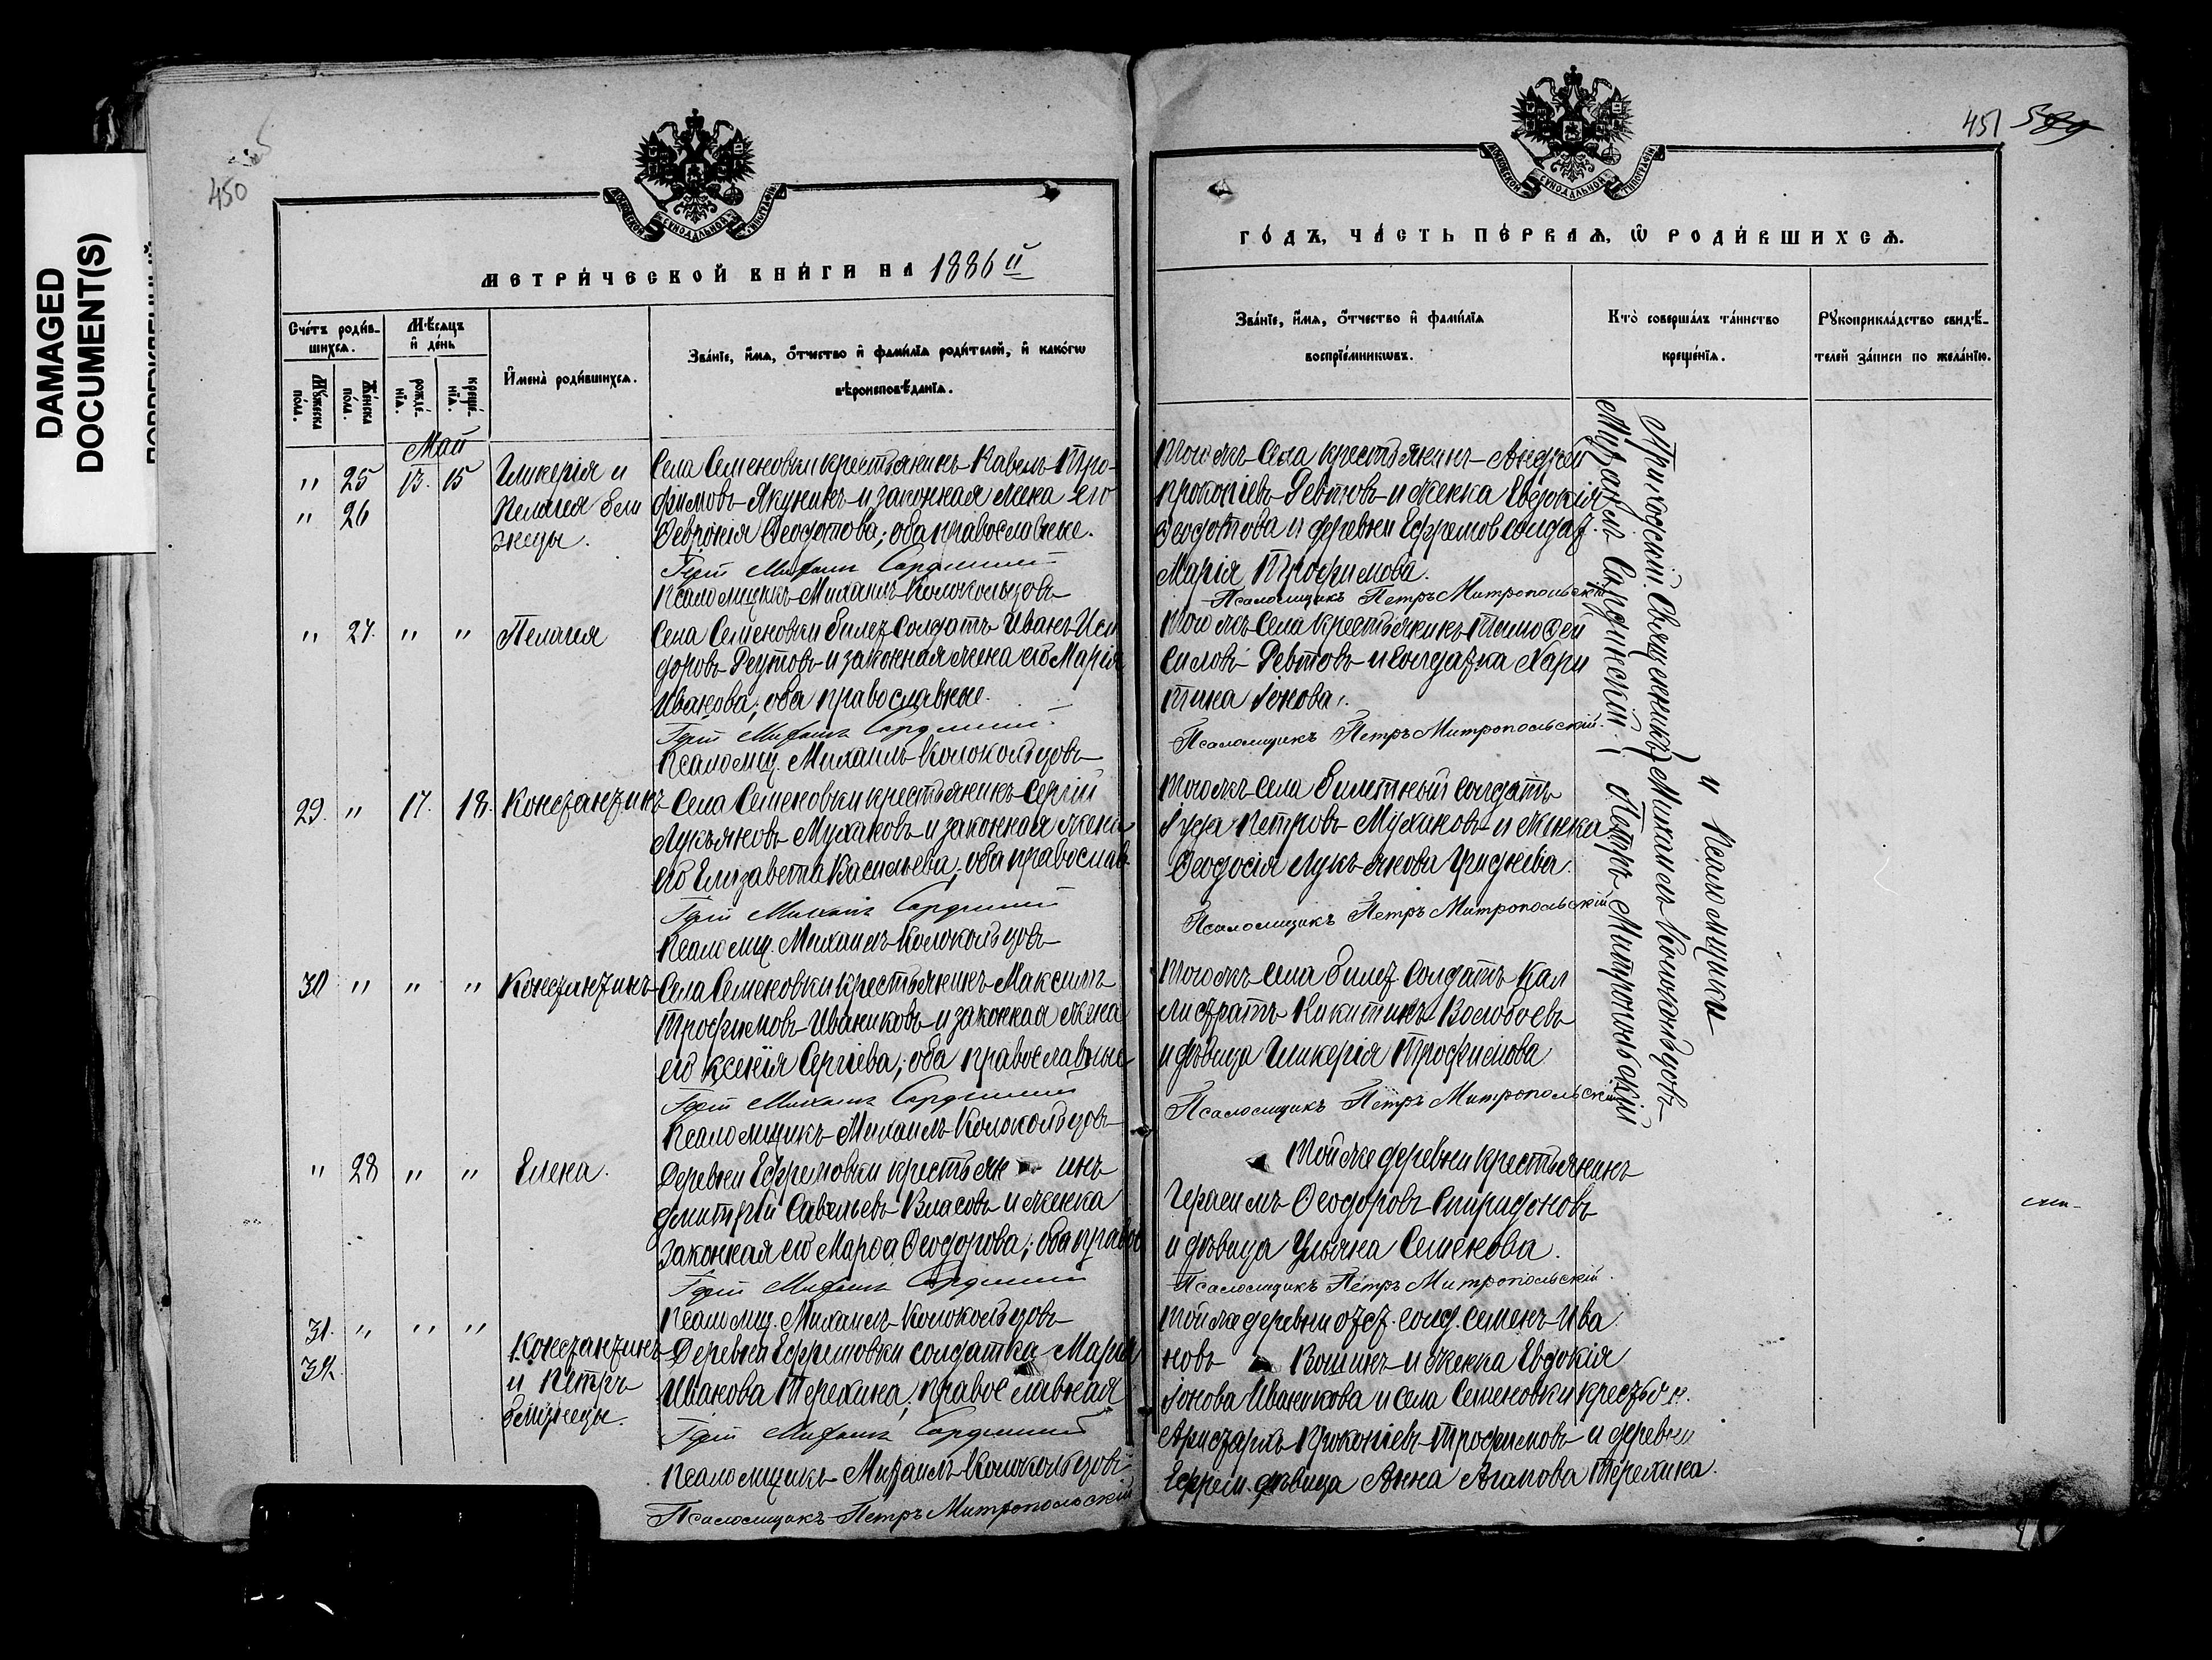 DAMAGED
DOCUMENT(S)
450
МЕТРИЧЕСКОЙ КНИГИ НА 1886й
Счетъ родив-
шихся.
Мужеска
пола.
Женска
пола.
Мѣсяцъ
и день
рожде-
нія.
креще-
нія.
Имена родившихся.
Званіе, имя, отчество и фамилія родителей, и какогѡ
вѣроисповѣданія.
Май
" 25 13. 15 Гликерія и
" 26 Пелагея бли
знецы.
Села Семеновки крестьянинъ Павелъ Тро-
фимовъ Якунинъ и законная жена его
Ѳевронія Ѳеодотова; оба православные.
Михаилъ
Псаломщикъ Михаилъ Колокольцовъ
" 27. " " Пелагея
Села Семеновки билет. солдатъ Иванъ Иси
доровъ Реутовъ и законная жена его Марія
Иванова; оба православные.
Михаилъ
Псаломщ. Михаилъ Колокольцовъ
29. " 17. 18. Константинъ
Села Семеновки крестьянинъ Сергій
Лукьяновъ Мухановъ и законная жена
его Елизавета Васильева; оба православ.
Михаилъ
Псаломщ. Михаилъ Колокольцовъ
30 " " " Константинъ
Села Семеновки крестьянинъ Максимъ
Трофимовъ Иваниковъ и законная жена
его Ксенія Сергіева; оба православные
Михаилъ
Псаломщикъ Михаилъ Колокольцовъ
" 28 " " Елена.
Деревни Ефремовки крестьян инъ
Дмитрій Савельевъ Власовъ и женка
законная его Марѳа Ѳеодорова; оба право
Михаилъ
Псаломщ. Михаилъ Колокольцовъ
31. " " " Константинъ
32. и Петръ
близнецы.
Деревни Ефремовки солдатка Марія
Иванова Терехина; православная
Михаилъ
Псаломщикъ Михаилъ Колокольцовъ
Псаломщикъ Петръ Митропольскій
451 589
ГОДЪ, ЧАСТЬ ПЕРВАЯ, Ѡ РОДИВШИХСЯ.
Званіе, имя, отчество и фамилія
воспріемниковъ.
Кто совершалъ таинство
крещенія.
Рукоприкладство свидѣ-
телей записи по желанію.
Того жъ села крестьянинъ Андрей
Прокопіевъ Ревтовъ и женка Евдокія
Ѳеодотова и деревни Ефремов солдат.
Марія Трофимова.
Псаломщикъ Петръ Митропольскій
Того жъ села крестьянинъ Тимоѳей
Силовъ Ревтовъ и солдатка Хари
тина Іонова.
Псаломщикъ Петръ Митропольскій.
Того жъ села билетный солдатъ
Іуда Петровъ Мухановъ и женка
Ѳеодосія Лукьянова Гриднева.
Псаломщикъ Петръ Митропольскій
Того жъ села билет. солдатъ Кал
листратъ Никитинъ Воловоевъ
и дѣвица Гликерія Трофимова
Псаломщикъ Петръ Митропольскій
Той же деревни крестьянинъ
Герасимъ Ѳеодоровъ Спиридоновъ
и дѣвица Ульяна Семенова.
Псаломщикъ Петръ Митропольскій.
Той же деревни отст. солд. Семенъ Ива
новъ Вошинъ и женка Евдокія
Іонова Иваникова и села Семеновки крестьян.
Аристархъ Прокопіевъ Трофимовъ и деревни
Ефрем. дѣвица Анна Агапова Терехина.
Приходскій Священникъ
Михаилъ Сардинскій
и Псаломщики
Михаилъ Колокольцовъ
Петръ Митропольскій